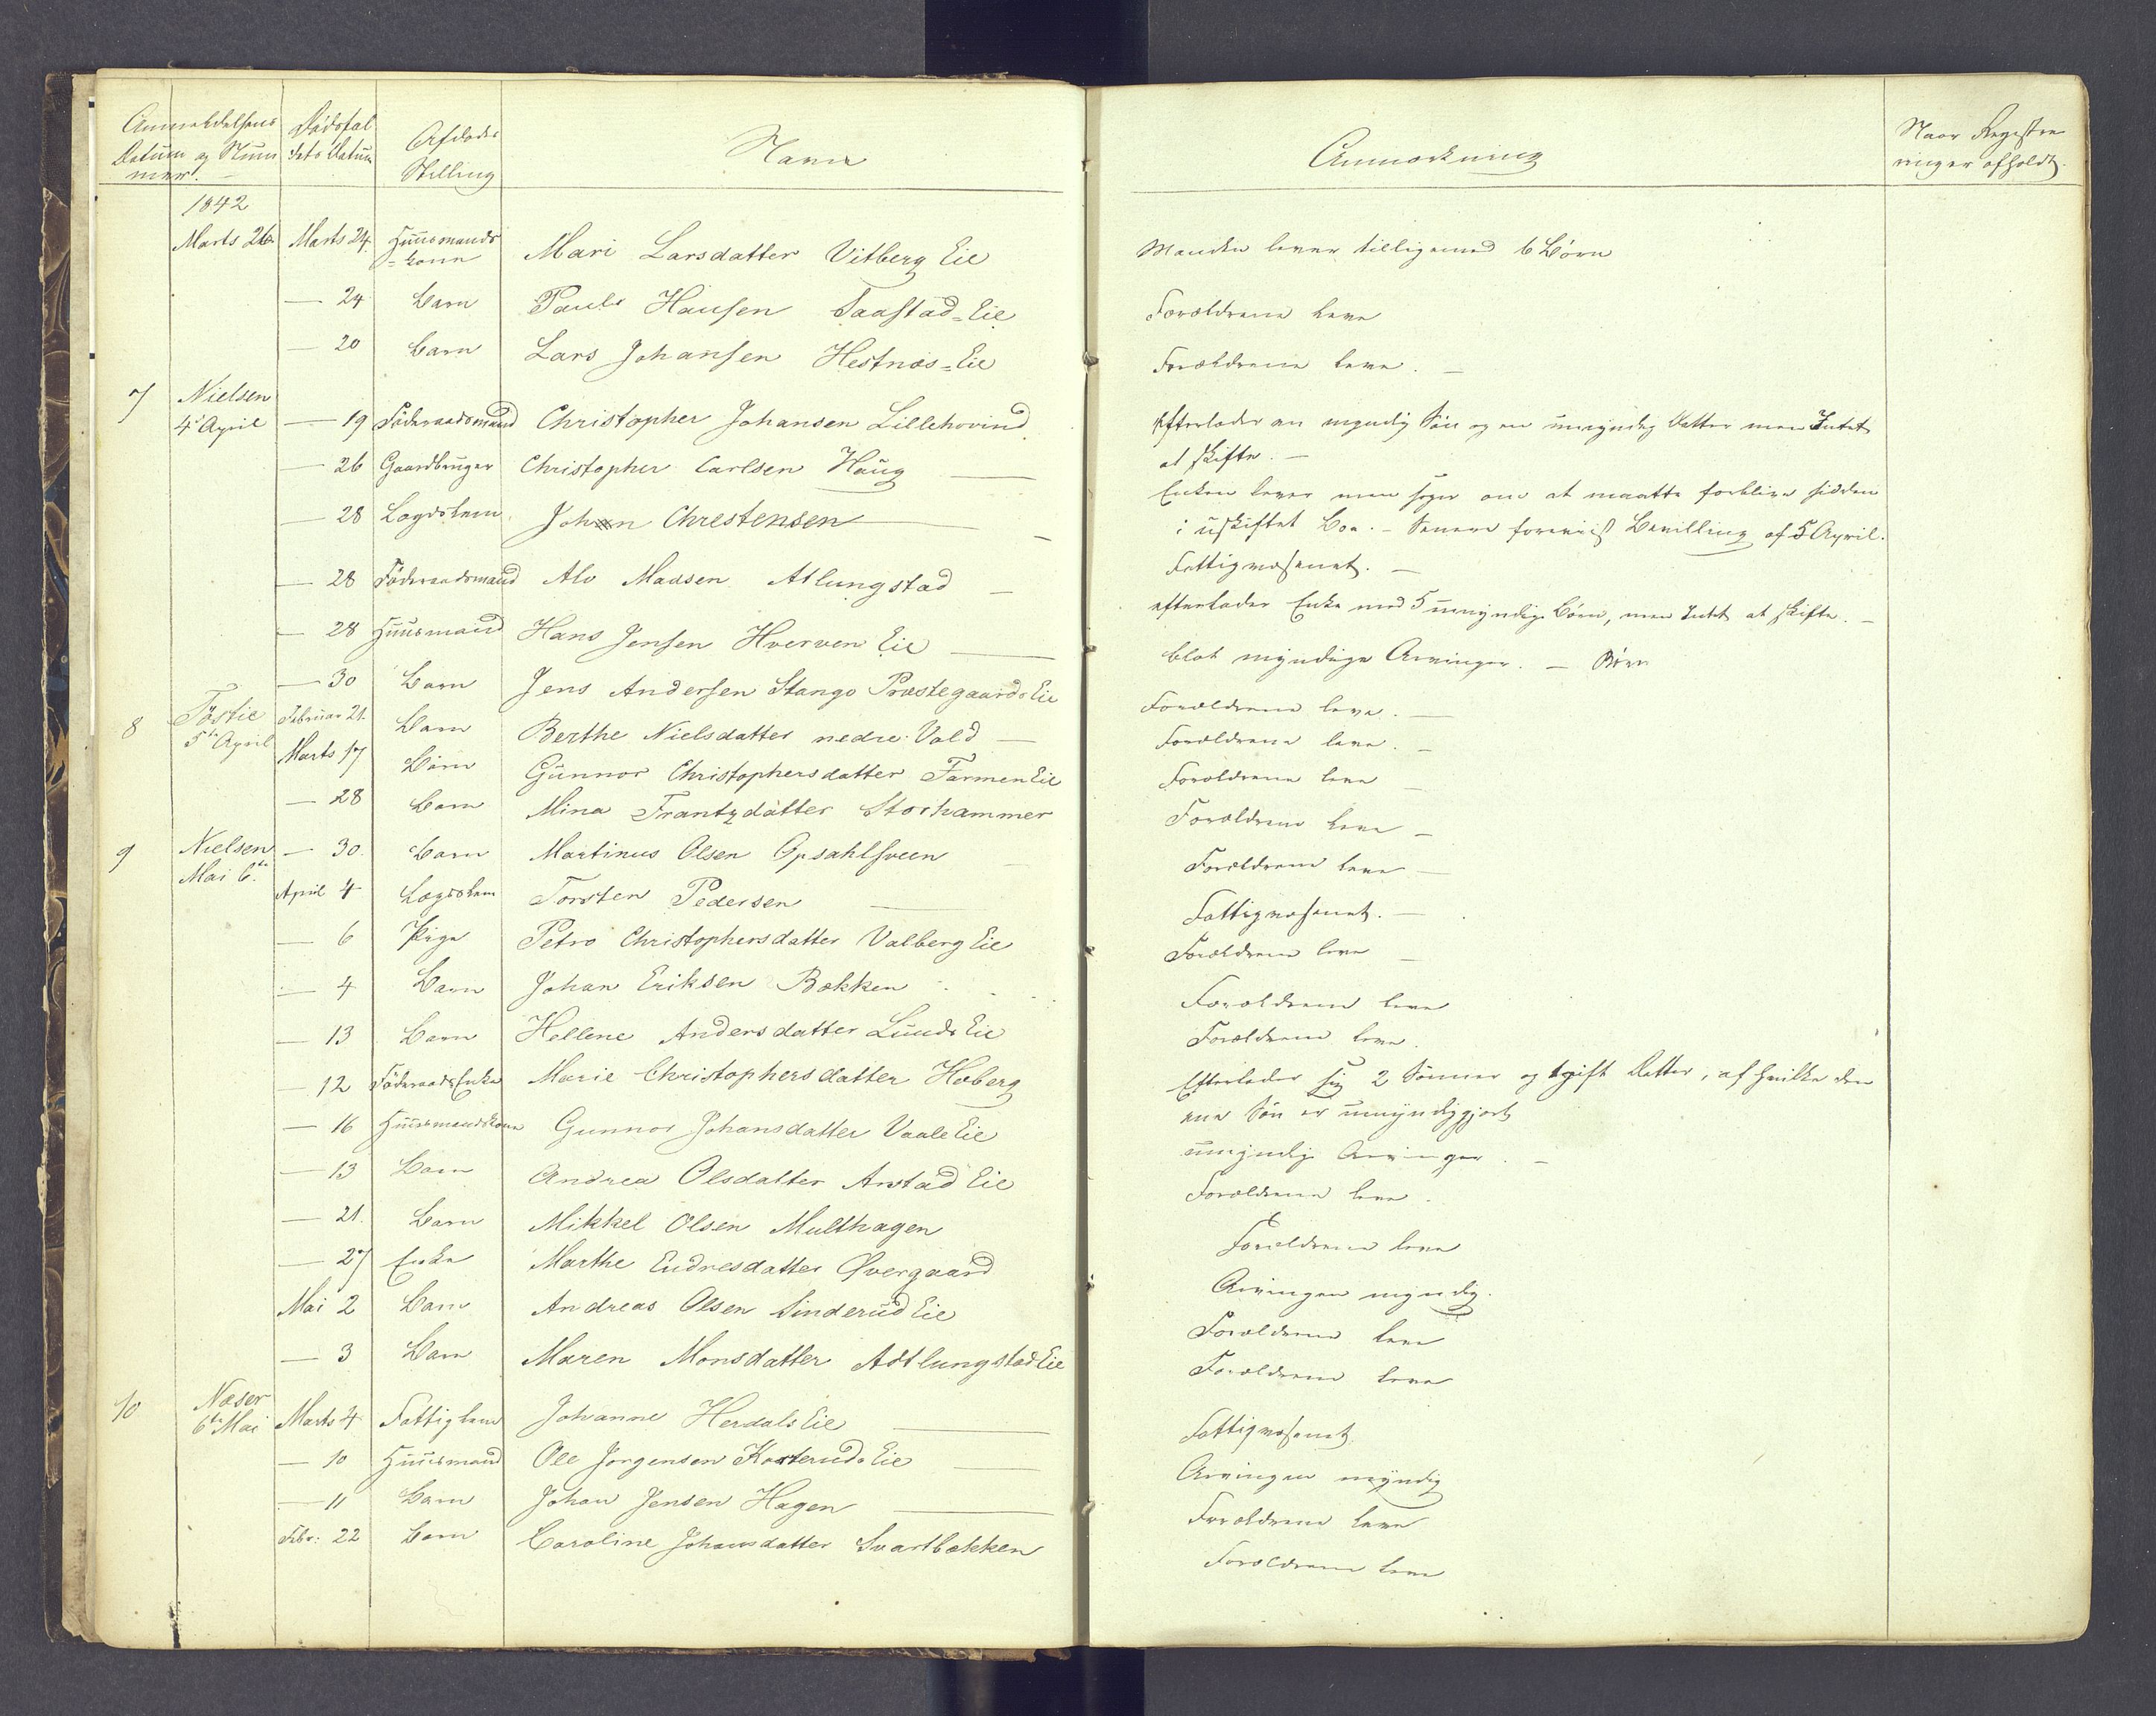 Anmeldelsens Datum og Nummer. Dödsfaldets Datum Afdødes Stilling Navn Anmærkning Naar Registreringer afholdt.
1842
Marts 26 Marts 24. Huusmandskone Mari Larsdatter Vitberg Eie Manden lever tilligemed 6 Börn
— 24 Barn Paul Hansen Saastad=Eie Forældrene leve
— 20 Barn Lars Johansen Hestnæs=Eie Forældrene leve. —
7 Nielsen
4 April — 19 Föderaadsmand Christopher Johansen Lillehovind Efterlader en myndig Sön og en umyndig Datter men Intet
at skifte. —
— 26 Gaardbruger Christopher Carlsen Haug — Enken lever men søger om at maatte forblive sidden
i uskiftet Boe. – Senere foreviist Bevilling af 5 April.
— 28 Lægdslem Johan Chrestensen — Fattigvæsenet. —
— 28 Föderaadsmand Alv Madsen Atlungstad — efterlader Enke med 5 umyndige Börn, men Intet at skifte. —
— 28 Huusmand Hans Jensen Hverven Eie — blot myndige Arvinger. — Börn
— 30 Barn Jens Andersen Stange Præstegaards Eie Forældrene leve. —
8 Tostie
5te April Februar 21. Barn Berthe Nielsdatter nedre Vold — Forældrene leve. —
Marts 17 Barn Gunnor Christophersdatter Farmen Eie Forældrene leve —
— 28 Barn Mina Frantzdatter Storhammer Forældrene leve —
9 Nielsen
Mai 6te — 30. Barn Martinus Olsen Opsahlsveen Forældrene leve —
April 4 Lægdslem Torsten Pedersen — Fattigvæsenet. —
— 6 Pige Petro Christophersdatter Valberg Eie Forældrene leve —
— 4 Barn Johan Eriksen Bækken Forældrene leve
— 13 Barn Hellene Andersdatter Lunds Eie Forældrene leve.
— 12 Föderaads Enke Marie Christophersdatter Hoberg Efterlader sig 2 Sönner og 1 gift Datter, af hvilke den
ene Sön er umyndiggjort
— 16 Huusmandskone Gunnor Johansdatter Vaale Eie umyndige Arvinger. —
— 13 Barn Andrea Olsdatter Arstad Eie Forældrene leve.
— 21. Barn Mikkel Olsen Multhagen Forældrene leve
— 27 Enke Marthe Endresdatter Øvergaard Arvingen myndig.
Mai 2 Barn Andreas Olsen Sinderud Eie Forældrene leve
— 3 Barn Maren Monsdatter Adtlungstad Eie Forældrene leve
10 Næser
6te Mai Marts 4 Fattiglem Johanne Herdals Eie — Fattigvæsenet
— 10 Huusmand Ole Jorgensen Korterud Eie — Arvingen myndig
— 11 Barn Johan Jensen Hagen — Forældrene leve
Febr. 22 Barn Caroline Johansdatter Svartbækken Forældrene leve